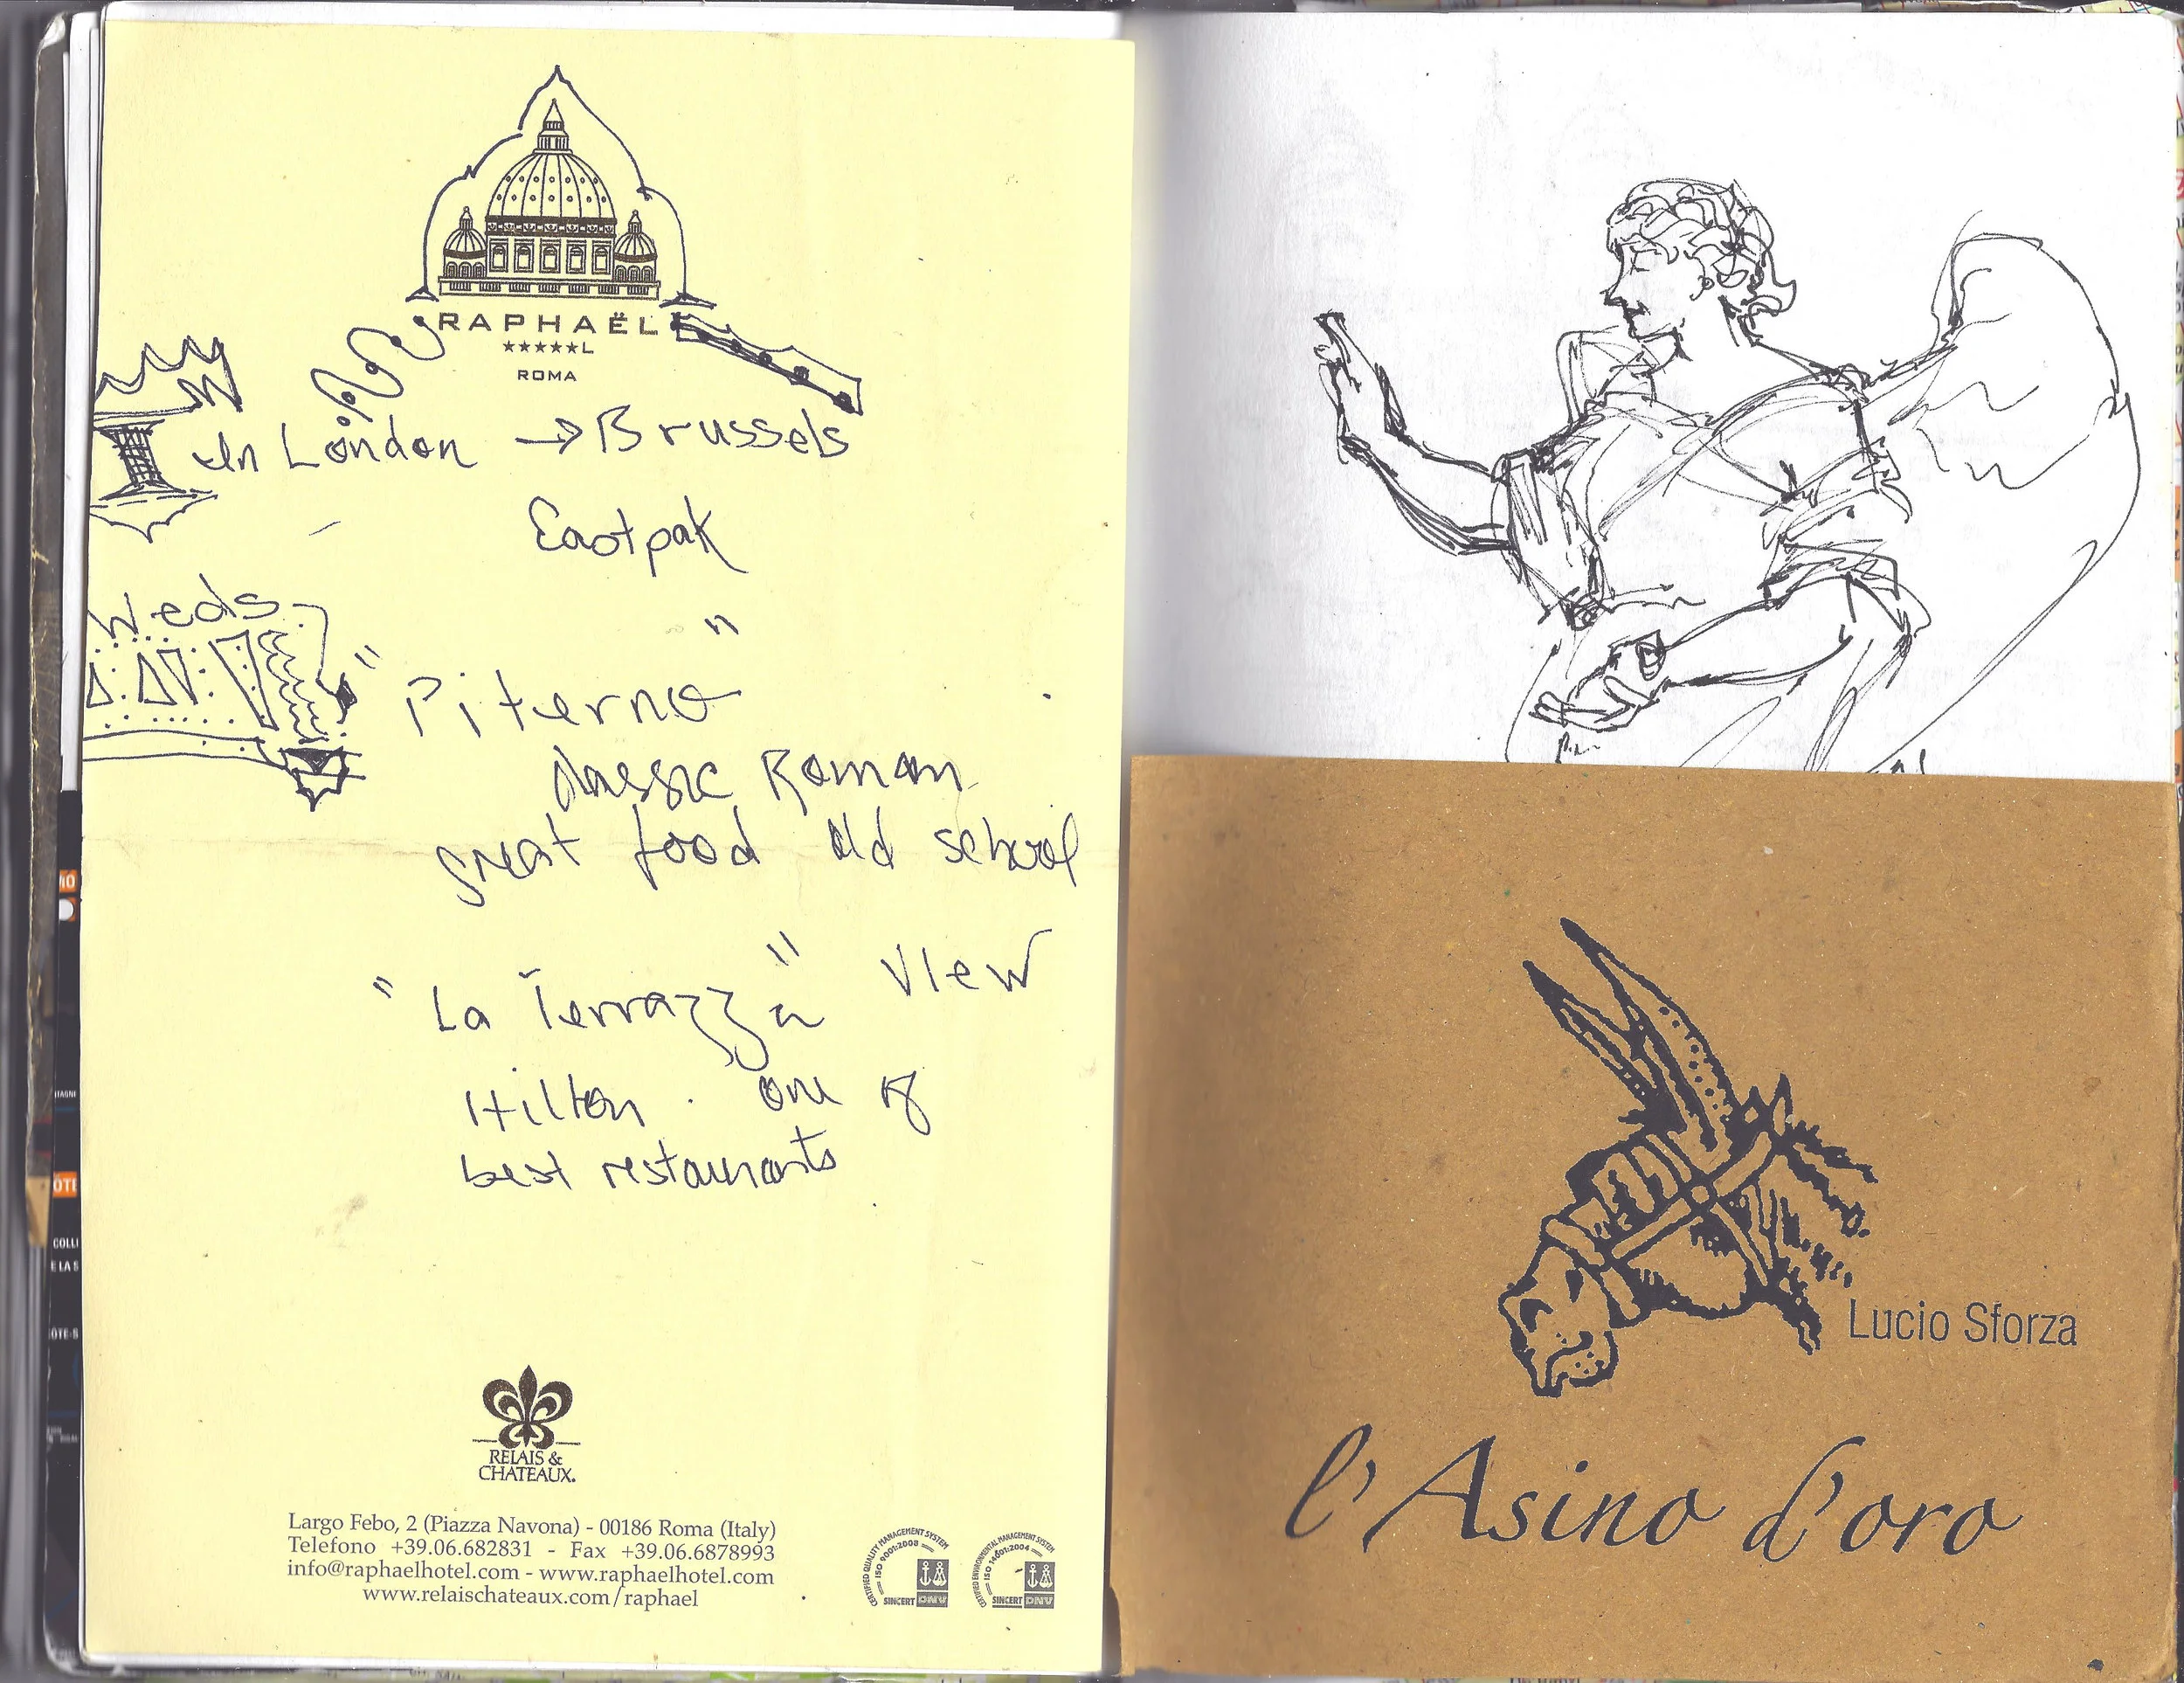 RAPHAËL
★★★★★L
ROMA
In London → Brussels
Eastpak
Weds.
" Piterno "
classic Roman
great food old school
" La Terrazza " View
Hilton . one of
best restaurants
RELAIS &
CHATEAUX.
Largo Febo, 2 (Piazza Navona) - 00186 Roma (Italy)
Telefono +39.06.682831 - Fax +39.06.6878993
info@raphaelhotel.com - www.raphaelhotel.com
www.relaischateaux.com/raphael
CERTIFIED QUALITY MANAGEMENT SYSTEM
ISO 9001:2008
SINCERT DNV
CERTIFIED ENVIRONMENTAL MANAGEMENT SYSTEM
ISO 14001:2004
SINCERT DNV
Lucio Sforza
l'Asino d'oro